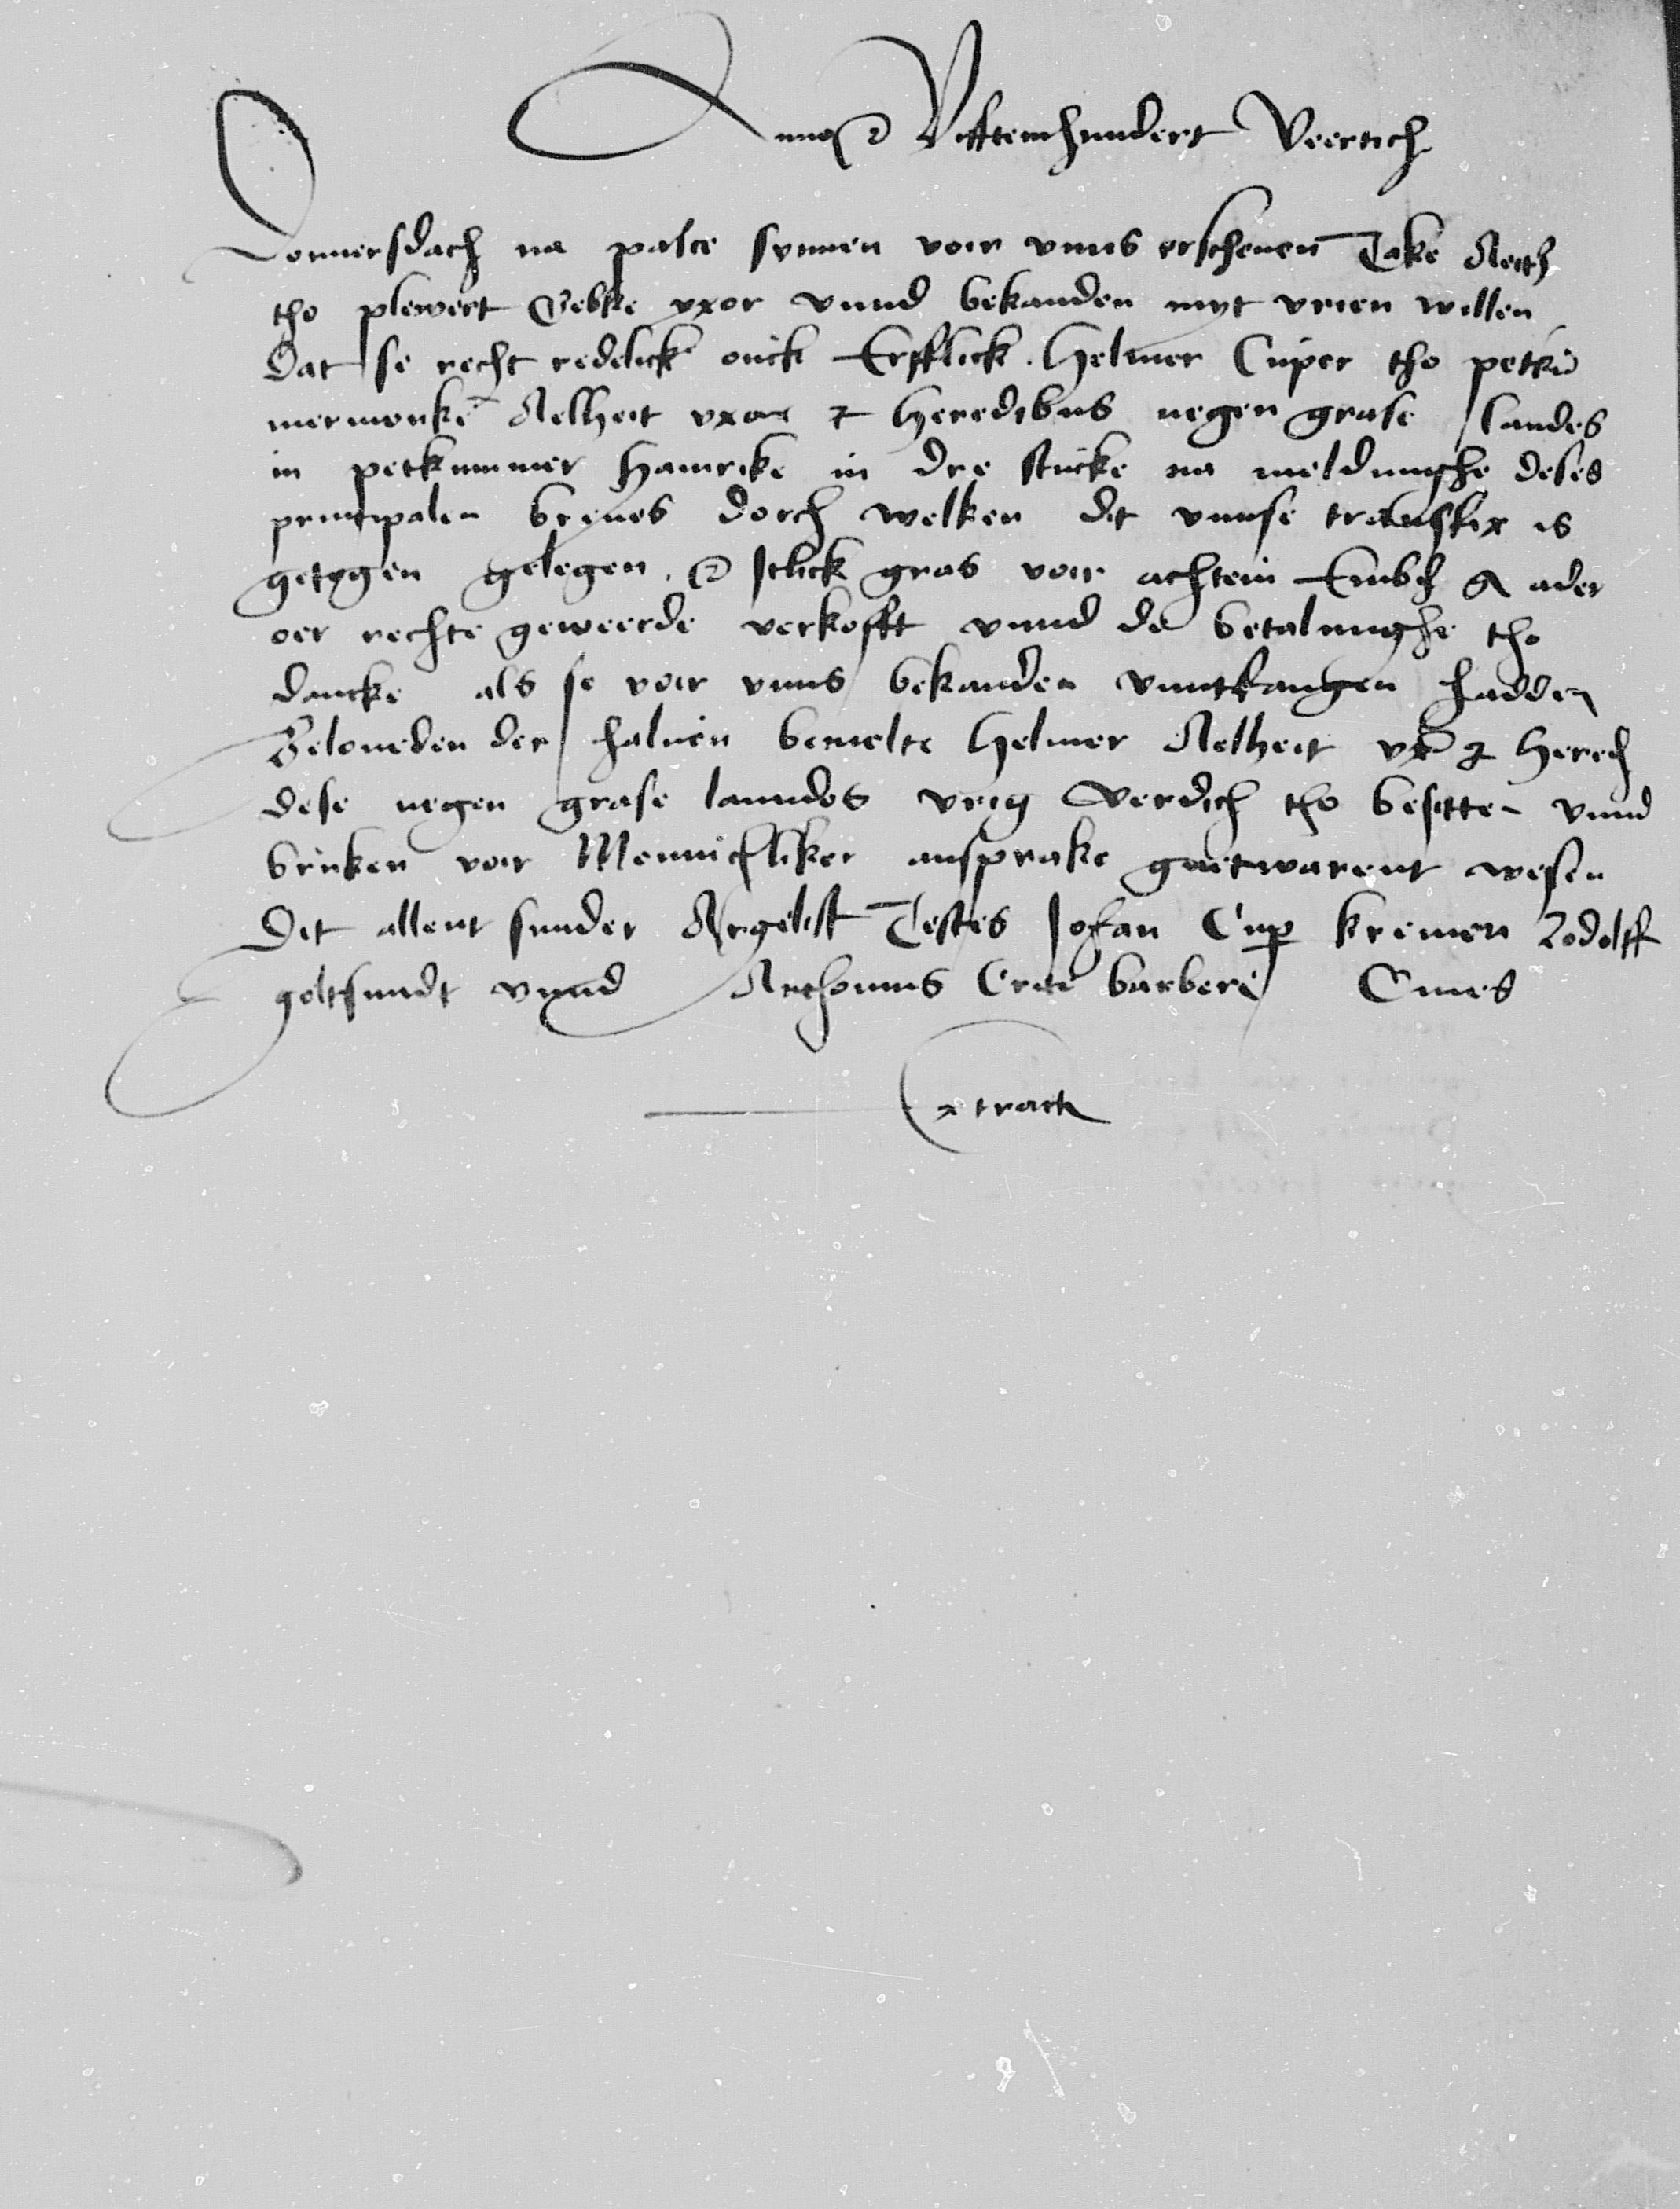 Anno Viffteinhundert Veertich
Donnersdach na palce synnen voir vnns erschenen Take
tho plewert Tebke vxor vnnd bekanden myt vrien willen
Dat se recht redelick ouick Erfflick. Helmer Cuper tho petku
mermonke Aelheit vxor et heredibus negen grase landes
in petkummer Hamrike in dre stucke na meldunghe deses
principalen breues dorch welken dit vnnse transfix is
getogen gelegen. Itlick gras voir achtein Embd gl ader
oer rechte geweerde verkofft vnnd de betalunghe tho
dancke als se voir vnns bekanden vnntfangen hadden
Beloueden der haluen bemelte Helmer Aelheit vx et hered
dese negen grase lanndes vrig verdich tho besitten vnnd
bruken voir Mennichliker ansprake guetwarent wesen
Dit allent sunder Argelist Testes Johan Cup kremer Rodolff
goltsmidt vnnd Anthonius barberer Ciues
Extract